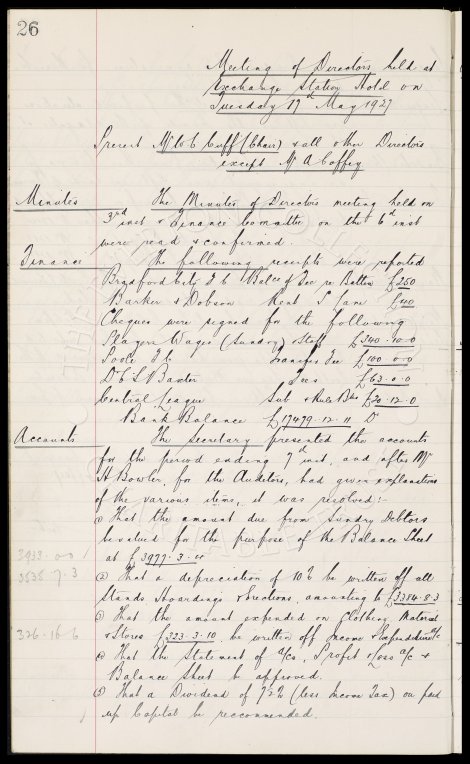 26
Meeting of Directors held at
Exchange Station Hotel on
Tuesday 17th May 1927
Present Mr W C Cuff (Chair) & all other Directors
except Mr A Coffey
Minutes The Minutes of Directors meeting held on
3rd inst & Finance Committee on the 6th inst
were read & confirmed.
Finance The following receipts were reported
Bradford City F C Balce of Fee re Batten £250
Barker & Dobson Rent S Lane £40
Cheques were signed for the following
Players Wages (Sundry) & Staff £340.10.0
Poole F C Transfer Fee £100.0.0
D C S Baxter Fees £63.0.0
Central League Sub & Rule Bks £20.12.0
Bank Balance £17479.12.11 D
Accounts The Secretary presented the accounts
for the period ending 7th inst, and after Mr
H Bowler, for the Auditors, had given explanations
of the various items, it was resolved:-
① That the amount due from Sundry Debtors
be valued for the purpose of the Balance Sheet
3933.0.0 at £3977.3.4
3636.7.3 ② That a depreciation of 10% be written off all
Stands Hoardings & Erections, amounting to £3384.8.3
③ That the amount expended on Clothing, Material
326.16.6 & Stores £323.3.10 be written off Income & Expenditure a/c
④ That the Statement of a/cs, Profit & Loss a/c &
Balance Sheet be approved.
⑤ That a Dividend of 7½% (less Income Tax) on paid
up Capital be reccommended.